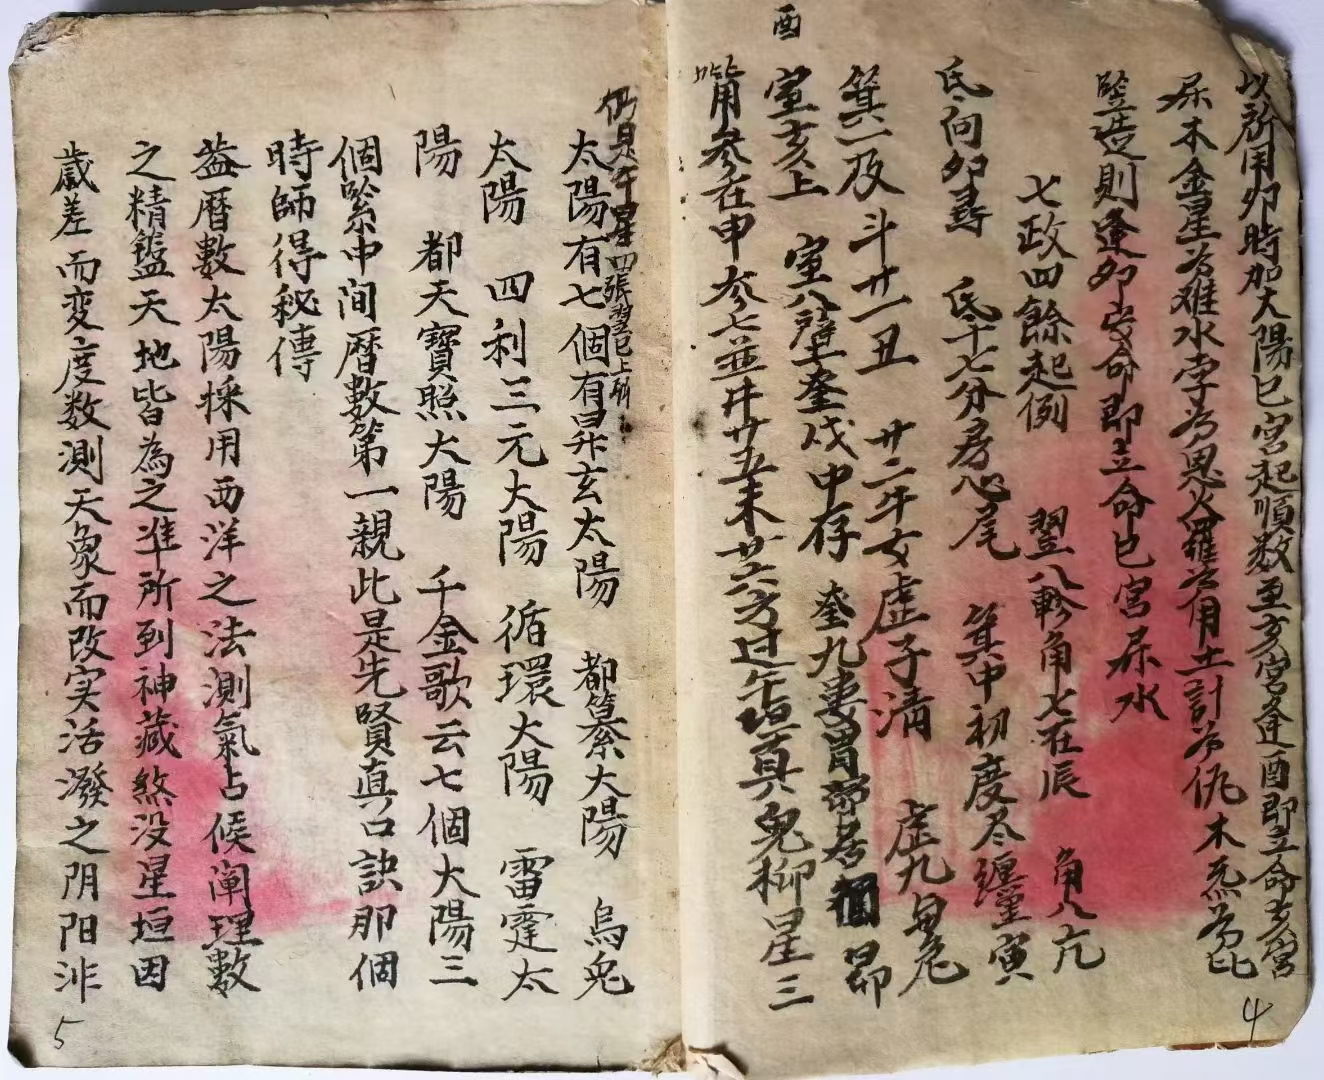 以所用卯時加太陽巳宮起順数至亥宮逢酉即立命亥宮
酉
尿木金星为难水孛为恩火羅为用土計为仇木炁为比
豎造則逢卯安命即立命巳宮尿水
七政四餘起例 翌八軫角七在辰 角八亢
氐向卯尋 氐十七分房心尾 箕中初度尽纏寅
箕一及斗廿一丑 廿二牛女虚子清 虚九自危
室亥上 室八壁奎戊中存 奎九婁胃昴 昴
觜参在申参七並井廿五未廿六方过午垣真鬼柳星三
仍是午星四張翌巳上斛
太陽有七個有昇玄太陽 都纂太陽 烏兔
太陽 四利三元大陽 循環大陽 雷霆太
陽 都天寶照大陽 千金歌云七個大陽三
個縈中間曆數第一親此是先賢真口訣那個
時師得秘傳
葢曆數太陽採用西洋之法測氣占候闡理數
之精鑑天地皆為之准所到神藏煞没星垣因
歲差而变度数測天象而改实活潑之阴阳非
5
4